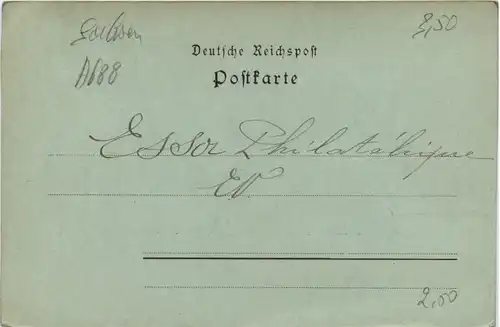 Sachsen
A688
8,50
Deutsche Reichspost
Postkarte
Essor Philatélique
EV.
2,50